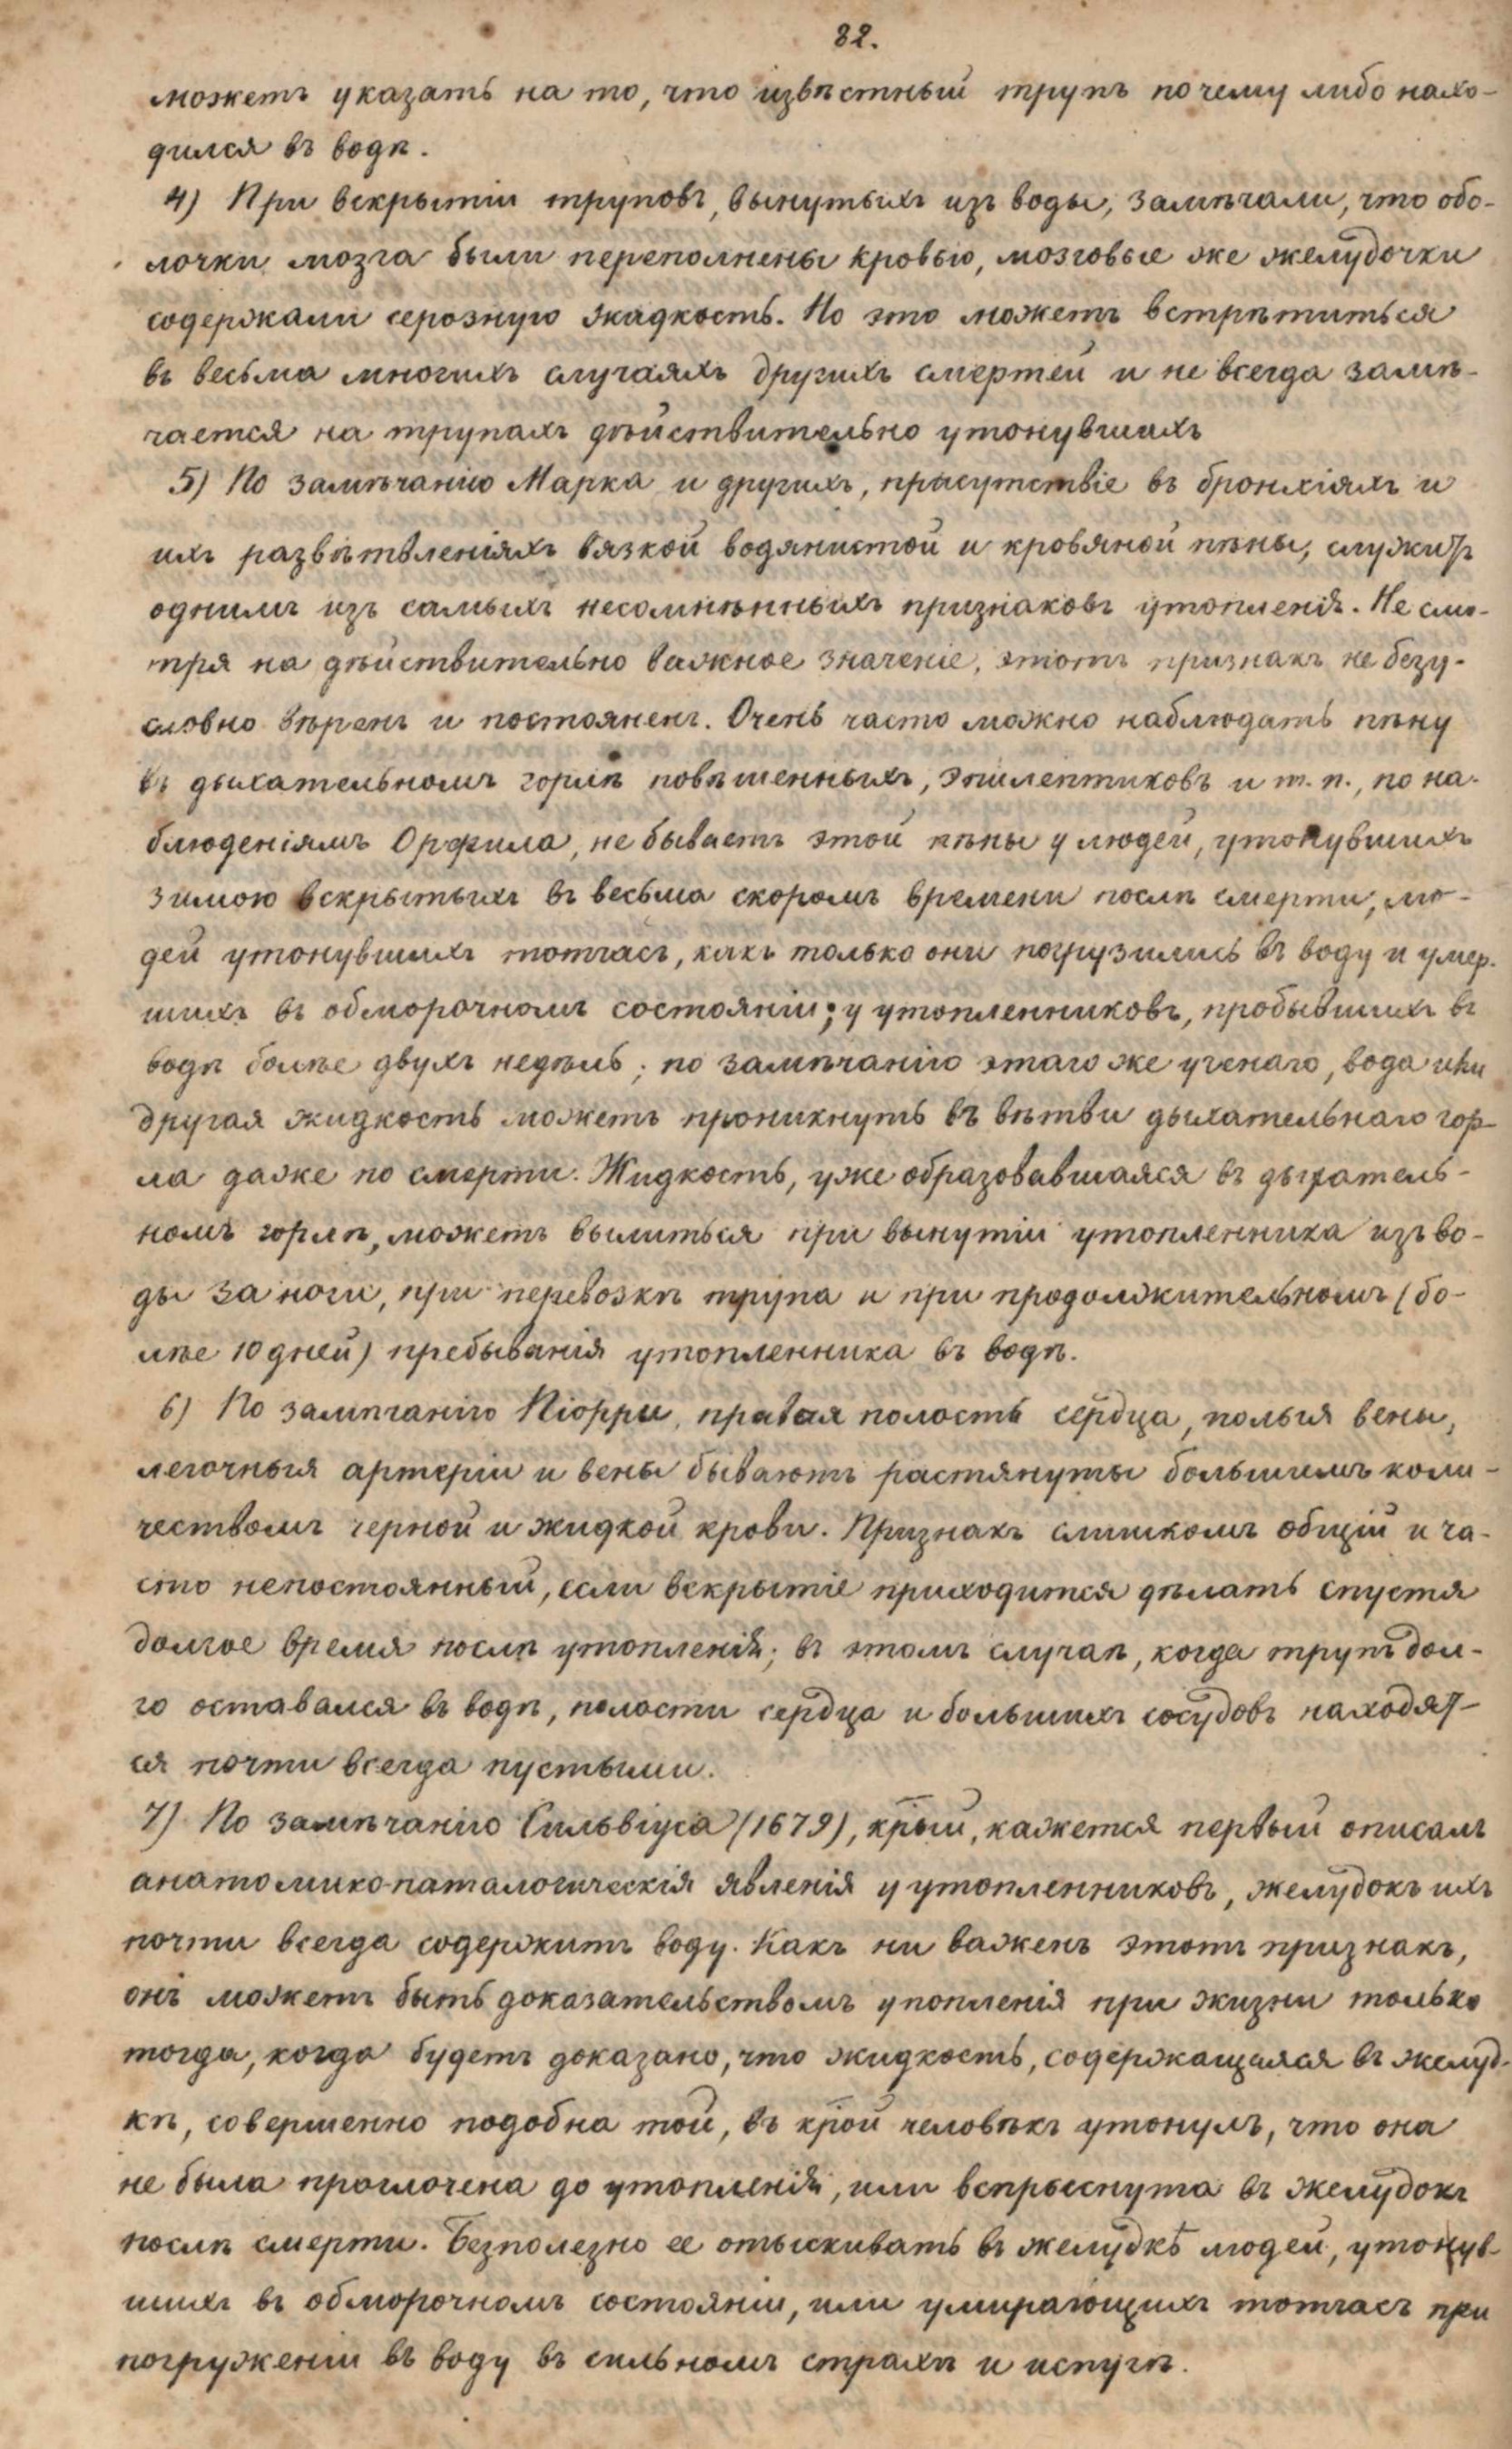 82.
можетъ указать на то, что извѣстный трупъ почему либо нахо-
дился въ водѣ.
4) При вскрытіи труповъ, вынутыхъ изъ воды, замѣчали, что обо-
лочки мозга были переполнены кровью, мозговые же желудочки
содержали серозную жидкость. Но это можетъ встрѣтиться
въ весьма многихъ случаяхъ другихъ смертей и не всегда замѣ-
чается на трупахъ дѣйствительно утонувшихъ
5) По замѣчанію Марка и другихъ, присутствіе въ бронхіяхъ и
ихъ развѣтвленіяхъ вязкой водянистой и кровяной пѣны, служитъ
однимъ изъ самыхъ несомнѣнныхъ признаковъ утопленія. Не смо-
тря на дѣйствительно важное значеніе, этотъ признакъ не безу-
словно вѣренъ и постояненъ. Очень часто можно наблюдать пѣну
въ дыхательномъ горлѣ повѣшенныхъ, эпилептиковъ и т. п., по на-
блюденіямъ Орфила, не бываетъ этой пѣны у людей, утонувшихъ
зимою вскрытыхъ въ весьма скоромъ времени послѣ смерти, лю-
дей утонувшихъ тотчасъ, какъ только они погрузились въ воду и умер-
шихъ въ обморочномъ состояніи; у утопленниковъ, пробывшихъ въ
водѣ болѣе двухъ недѣль; по замѣчанію этаго же ученаго, вода или
другая жидкость можетъ проникнуть въ вѣтви дыхательнаго гор-
ла даже по смерти. Жидкость, уже образовавшаяся въ дыхатель-
номъ горлѣ, можетъ вылиться при вынутіи утопленника изъ во-
ды за ноги, при перевозкѣ трупа и при продолжительномъ (бо-
лѣе 10 дней) пребыванія утопленника въ водѣ.
6) По замѣчанію Піорри, правая полость сердца, полыя вены,
легочныя артеріи и вены бываютъ растянуты большимъ коли-
чествомъ черной и жидкой крови. Признакъ слишкомъ общій и ча-
сто непостоянный, если вскрытіе приходится дѣлать спустя
долгое время послѣ утопленія; въ этомъ случаѣ, когда трупъ дол-
го оставался въ водѣ, полости сердца и большихъ сосудовъ находят-
ся почти всегда пустыми.
7) По замѣчанію Сильвіуса (1679), крый, кажется первый описалъ
анатомико-паталогическія явленія у утопленниковъ, желудокъ ихъ
почти всегда содержитъ воду. Какъ ни важенъ этотъ признакъ,
онъ можетъ быть доказательствомъ упопленія при жизни только
тогда, когда будетъ доказано, что жидкость, содержащаяся въ желуд-
кѣ, совершенно подобна той, въ крой человѣкъ утонулъ, что она
не была проглочена до утопленія, или вспрыснута въ желудокъ
послѣ смерти. Безполезно ее отыскивать въ желудкѣ людей, утонув-
шихъ въ обморочномъ состояніи, или умирающихъ тотчасъ при
погруженіи въ воду въ сильномъ страхѣ и испугѣ.